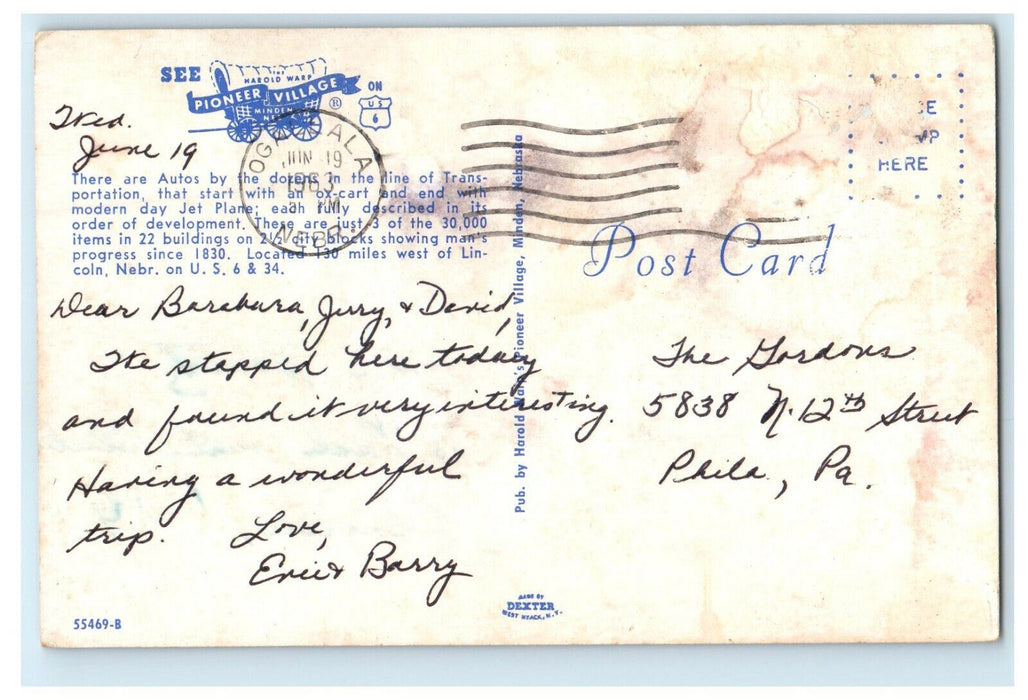 SEE
THE
HAROLD WARP
PIONEER VILLAGE ®
MINDEN
NEBR.
ON
US
6
Wed.
June 19
OGALLALA
JUN 19
1963
PM
NEBR.
There are Autos by the dozens in the line of Trans-
portation, that start with an ox-cart and end with
modern day Jet Plane; each fully described in its
order of development. These are just 3 of the 30,000
items in 22 buildings on 2½ city blocks showing man's
progress since 1830. Located 130 miles west of Lin-
coln, Nebr. on U. S. 6 & 34.
Dear Barabura, Jerry, & David,
We stopped here today
and found it very interesting.
Having a wonderful
trip.
Love,
Eric & Barry
55469-B
Pub. by Harold Warp's Pioneer Village, Minden, Nebraska
MADE BY
DEXTER
WEST NYACK, N.Y.
HERE
Post Card
The Gordons
5838 N. 12th Street
Phila, Pa.